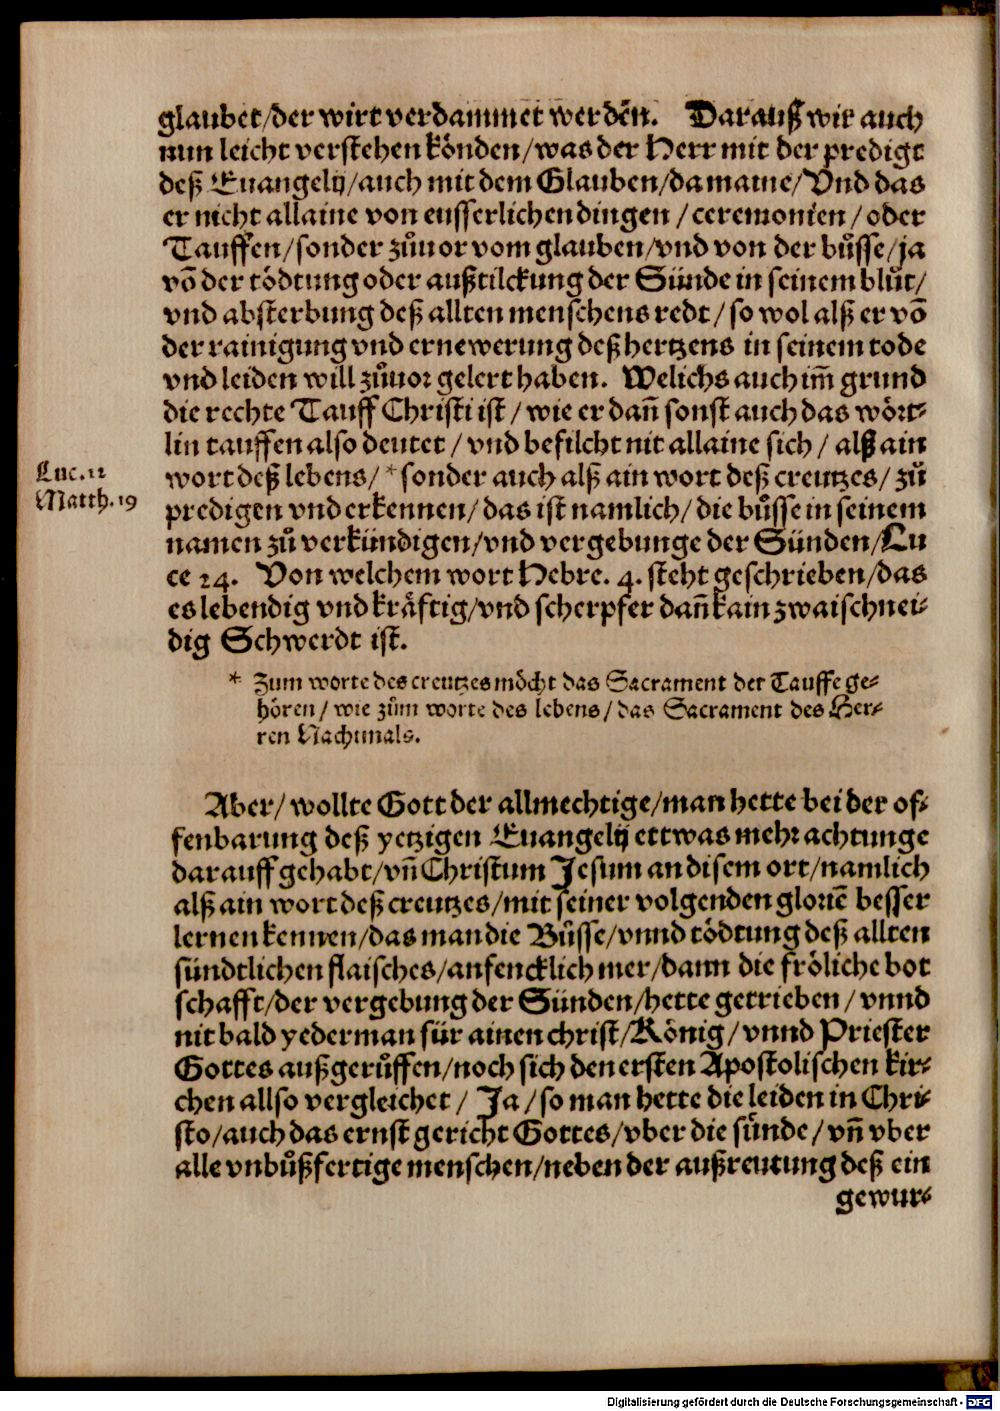 glaubet/der wirt verdammet werdēn. Darauß wir auch
nun leicht verstehen könden/was der Herr mit der predigt
deß Euangelij/auch mit dem Glauben/da maine/Vnd das
er nicht allaine von eusserlichen dingen/ceremonien/oder
Tauffen/sonder zůuor vom glauben/vnd von der bůsse/ja
võ der tödtung oder außtilckung der Sünde in seinem blůt/
vnd absterbung deß allten menschens redt/so wol alß er võ
der rainigung vnd ernewerung deß hertzens in seinem tode
vnd leiden will zůuor gelert haben. Welichs auch im̄ grund
die rechte Tauff Christi ist/wie er dañ sonst auch das wört-
lin tauffen also deutet/vnd befilcht nit allaine sich/alß ain
Luc.12
Matth.19
wort deß lebens/*sonder auch alß ain wort deß creutzes/zů
predigen vnd erkennen/das ist namlich/die bůsse in seinem
namen zů verkündigen/vnd vergebunge der Sünden/Lu
ce 24. Von welchem wort Hebre. 4. steht geschrieben/das
es lebendig vnd kräftig/vnd scherpfer dañ kain zwaischnei-
dig Schwerdt ist.
* Zum worte des creutzes möcht das Sacrament der Tauffe ge-
hören/wie zům worte des lebens/das Sacrament des Her-
ren Nachtmals.
Aber/wollte Gott der allmechtige/man hette bei der of-
fenbarung deß yetzigen Euangelij ettwas mehr achtunge
darauff gehabt/vñ Christum Jesum an disem ort/namlich
alß ain wort deß creutzes/mit seiner volgenden gloriē besser
lernen kennen/das man die Bůsse/vnnd tödtung deß allten
sündtlichen flaisches/anfencklich mer/dann die fröliche bot
schafft/der vergebung der Sünden/hette getrieben/vnnd
nit bald yederman für ainen christ/König/vnnd Priester
Gottes außgerůffen/noch sich den ersten Apostolischen kir-
chen allso vergleichet/Ja/so man hette die leiden in Chri-
sto/auch das ernst gericht Gottes/vber die sünde/vñ vber
alle vnbůßfertige menschen/neben der außreutung deß ein
gewur-
Digitalisierung gefördert durch die Deutsche Forschungsgemeinschaft - DFG